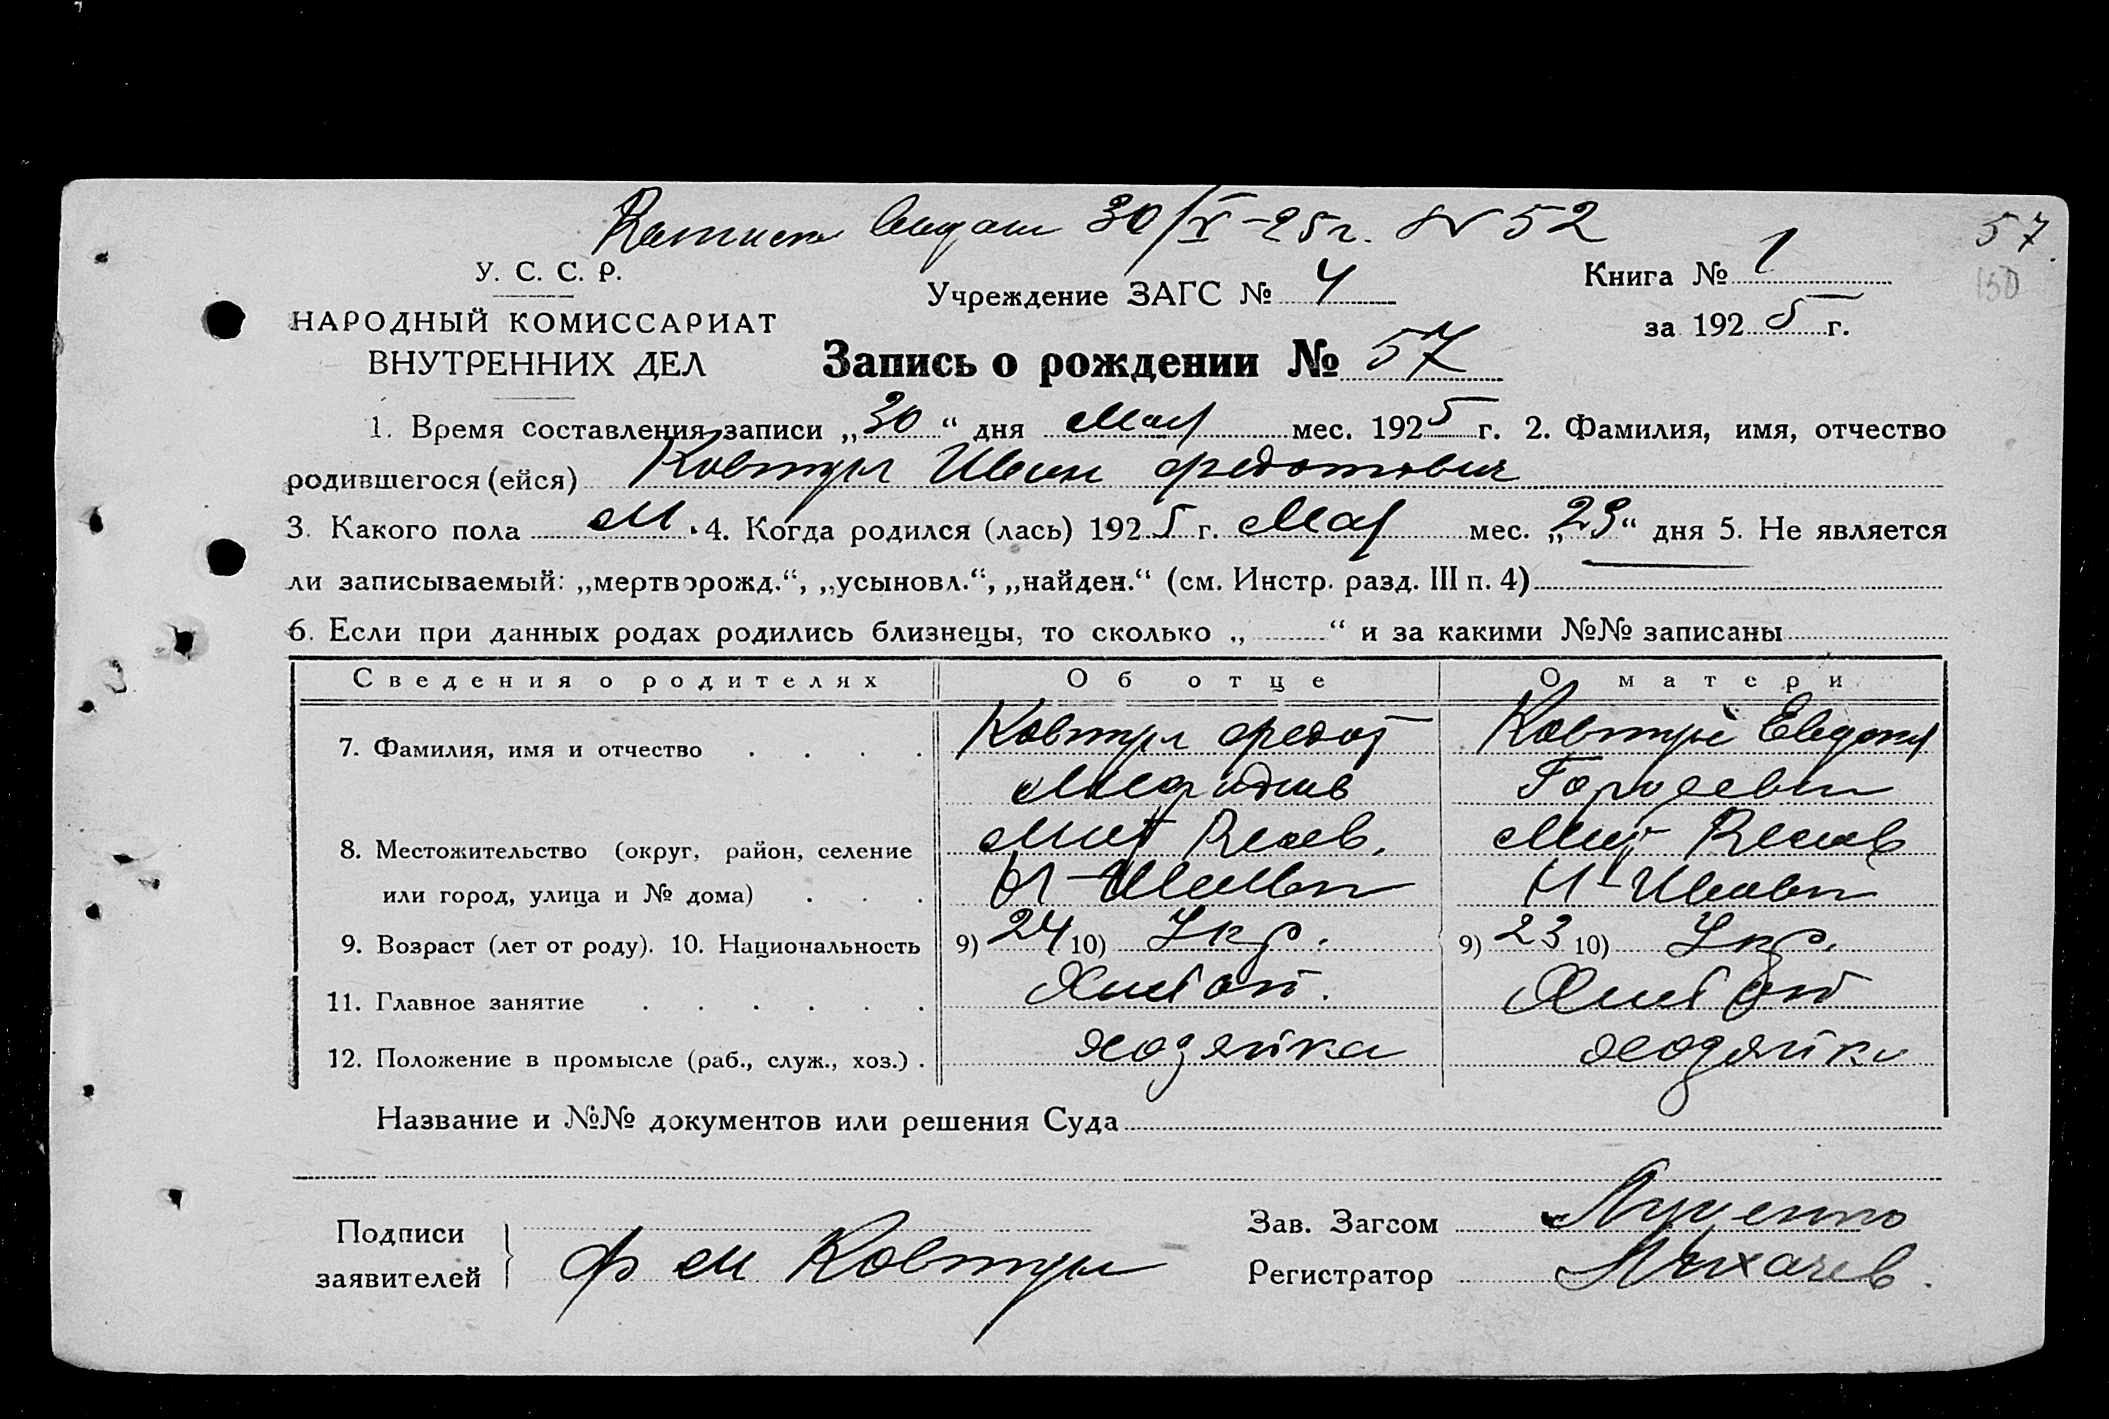 выдан 30/V-25г. № 52
57
150
У. С. С. Р.
НАРОДНЫЙ КОМИССАРИАТ
ВНУТРЕННИХ ДЕЛ
Учреждение ЗАГС № 4
Книга № 1
за 1925 г.
Запись о рождении № 57
1. Время составления записи „30“ дня Мая мес. 1925 г. 2. Фамилия, имя, отчество
родившегося (ейся) Ковтун Иван Федотович
3. Какого пола М. 4. Когда родился (лась) 1925 г. Мая мес. „29“ дня 5. Не является
ли записываемый: „мертворожд.“, „усыновл.“, „найден.“ (см. Инстр. разд. III п. 4)
6. Если при данных родах родились близнецы, то сколько „ “ и за какими №№ записаны
Сведения о родителях Об отце О матери
7. Фамилия, имя и отчество Ковтун Федот Ковтун
8. Местожительство (округ, район, селение
или город, улица и № дома)
9. Возраст (лет от роду). 10. Национальность 9) 24 10) Укр. 9) 23 10) Укр.
11. Главное занятие
12. Положение в промысле (раб., служ., хоз.) хозяйка хозяйка
Название и №№ документов или решения Суда
Подписи
заявителей Ф М Ковтун
Зав. Загсом Луценко
Регистратор Лихачев